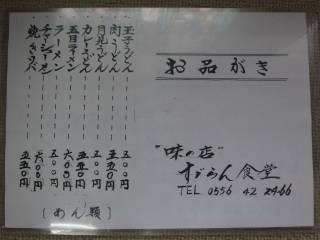 お品がき
"味の店"
すゞらん食堂
TEL 0556 42 2466
玉子うどん 五〇〇円
肉うどん 五五〇円
月見うどん 五〇〇円
カレーうどん 五五〇円
五目ラーメン 六〇〇円
ラーメン 五〇〇円
チャーシューメン 六〇〇円
焼きそば 五五〇円
(めん類)